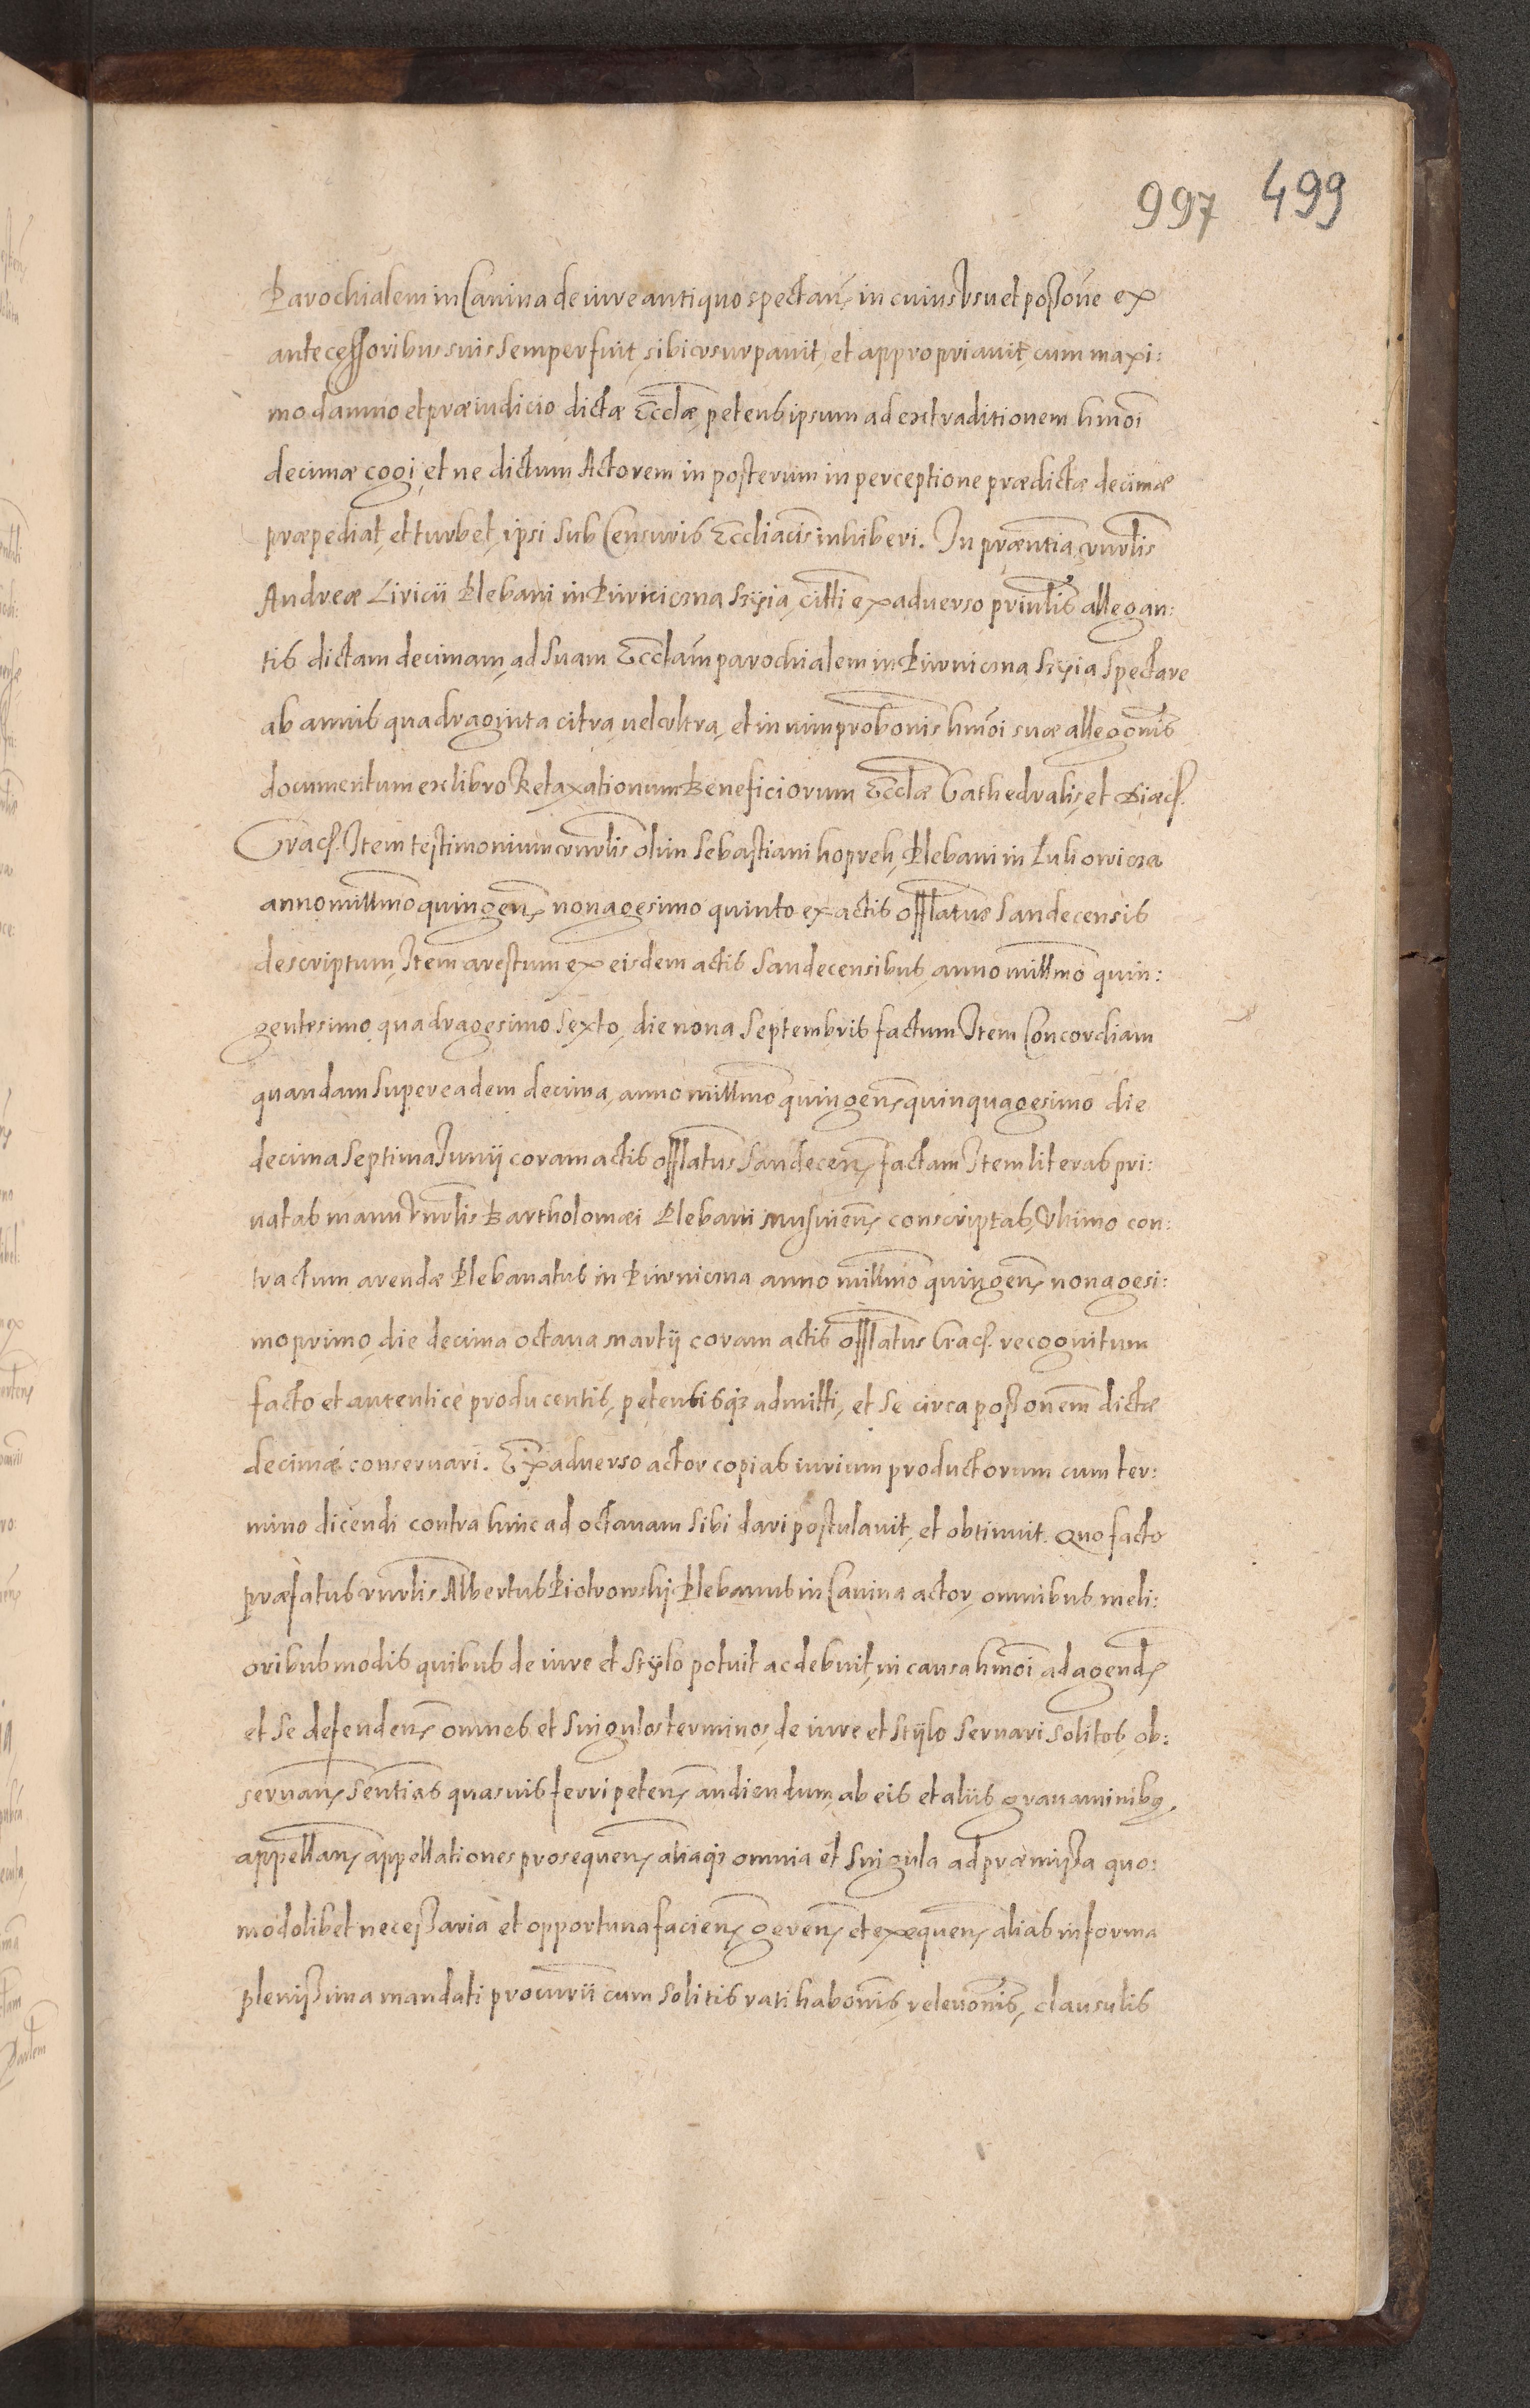 997 499
Parochialem in Canina de iure antiquo spectan̄, in cuius vsu et poss̄one ex
antecessoribus suis semper fuit, sibi vsurpauit, et appropriauit, cum maxi:
mo damno et præiudicio dictæ Eccl̄æ, petens ipsum ad extraditionem hm̄oi
decimæ cogi, et ne dictum Actorem in posterum in perceptione prædictæ decimæ
præpediat, et turbet, ipsi sub Censuris Eccl̄iacis inhiberi. In præn̄tia, vnr̄lis
Andreæ Liricii Plebani in Piwniczna Szyia, citti ex aduerso prin̄lis allegan:
tis dictam decimam, ad suam Eccl̄am parochialem in Piwniczna Szyia spectare
ab annis quadraginta citra uel vltra, et in uim prob̄onis hm̄oi suæ alleḡonis
documentum ex libro Retaxationum Beneficiorum Eccl̄æ Cathedralis, et Diæc̄.
Crac̄. Item testimonium vnr̄lis olim Sebastiani Plebani in
anno mill̄mo quingen̄, nonagesimo quinto ex actis off̄latus Sandecensis
descriptum, Item arestum ex eisdem actis Sandecensibus, anno mill̄mo quin:
gentesimo, quadragesimo sexto, die nona Septembris factum Item Concordiam
quandam super eadem decima, anno mill̄mo quingen̄, quinquagesimo die
decima septima Iunij coram actis off̄latus Sandecen̄, factam Item literas pri:
uatas manu vnr̄lis Bartholomæi Plebani Musinen̄, conscriptas, Vltimo con:
tractum arendæ Plebanatus in Piwniczna anno mill̄mo quingen̄, nonagesi:
mo primo, die decima octaua Martij coram actis off̄latus Crac̄. recognitum
facto et autenticè producentis, petentisq̄ admitti, et se circa poss̄onem dictæ
decimæ conseruari. Ex aduerso actor copias iurium productorum cum ter:
mino dicendi contra hinc ad octauam sibi dari postulauit, et obtinuit. Quo facto
præfatus vnr̄lis Albertus Piotrowskj Plebanus in Canina actor, omnibus meli:
oribus modis quibus de iure et stylo potuit ac debuit, in causa hm̄oi ad agend̄,
et se defenden̄, omnes et singulos terminos, de iure et stylo seruari solitos, ob:
seruan̄, sen̄tias quasuis ferri peten̄, audiendum, ab eis et aliis grauaminibq,
appellan̄, appellationes prosequen̄, aliaq̄ omnia et singula ad præmissa quo:
modolibet necessaria et opportuna facien̄, geren̄, et exequen̄, alias in forma
plenissima mandati procur̄ii cum solitis ratihab̄onis, releūonis, clausulis